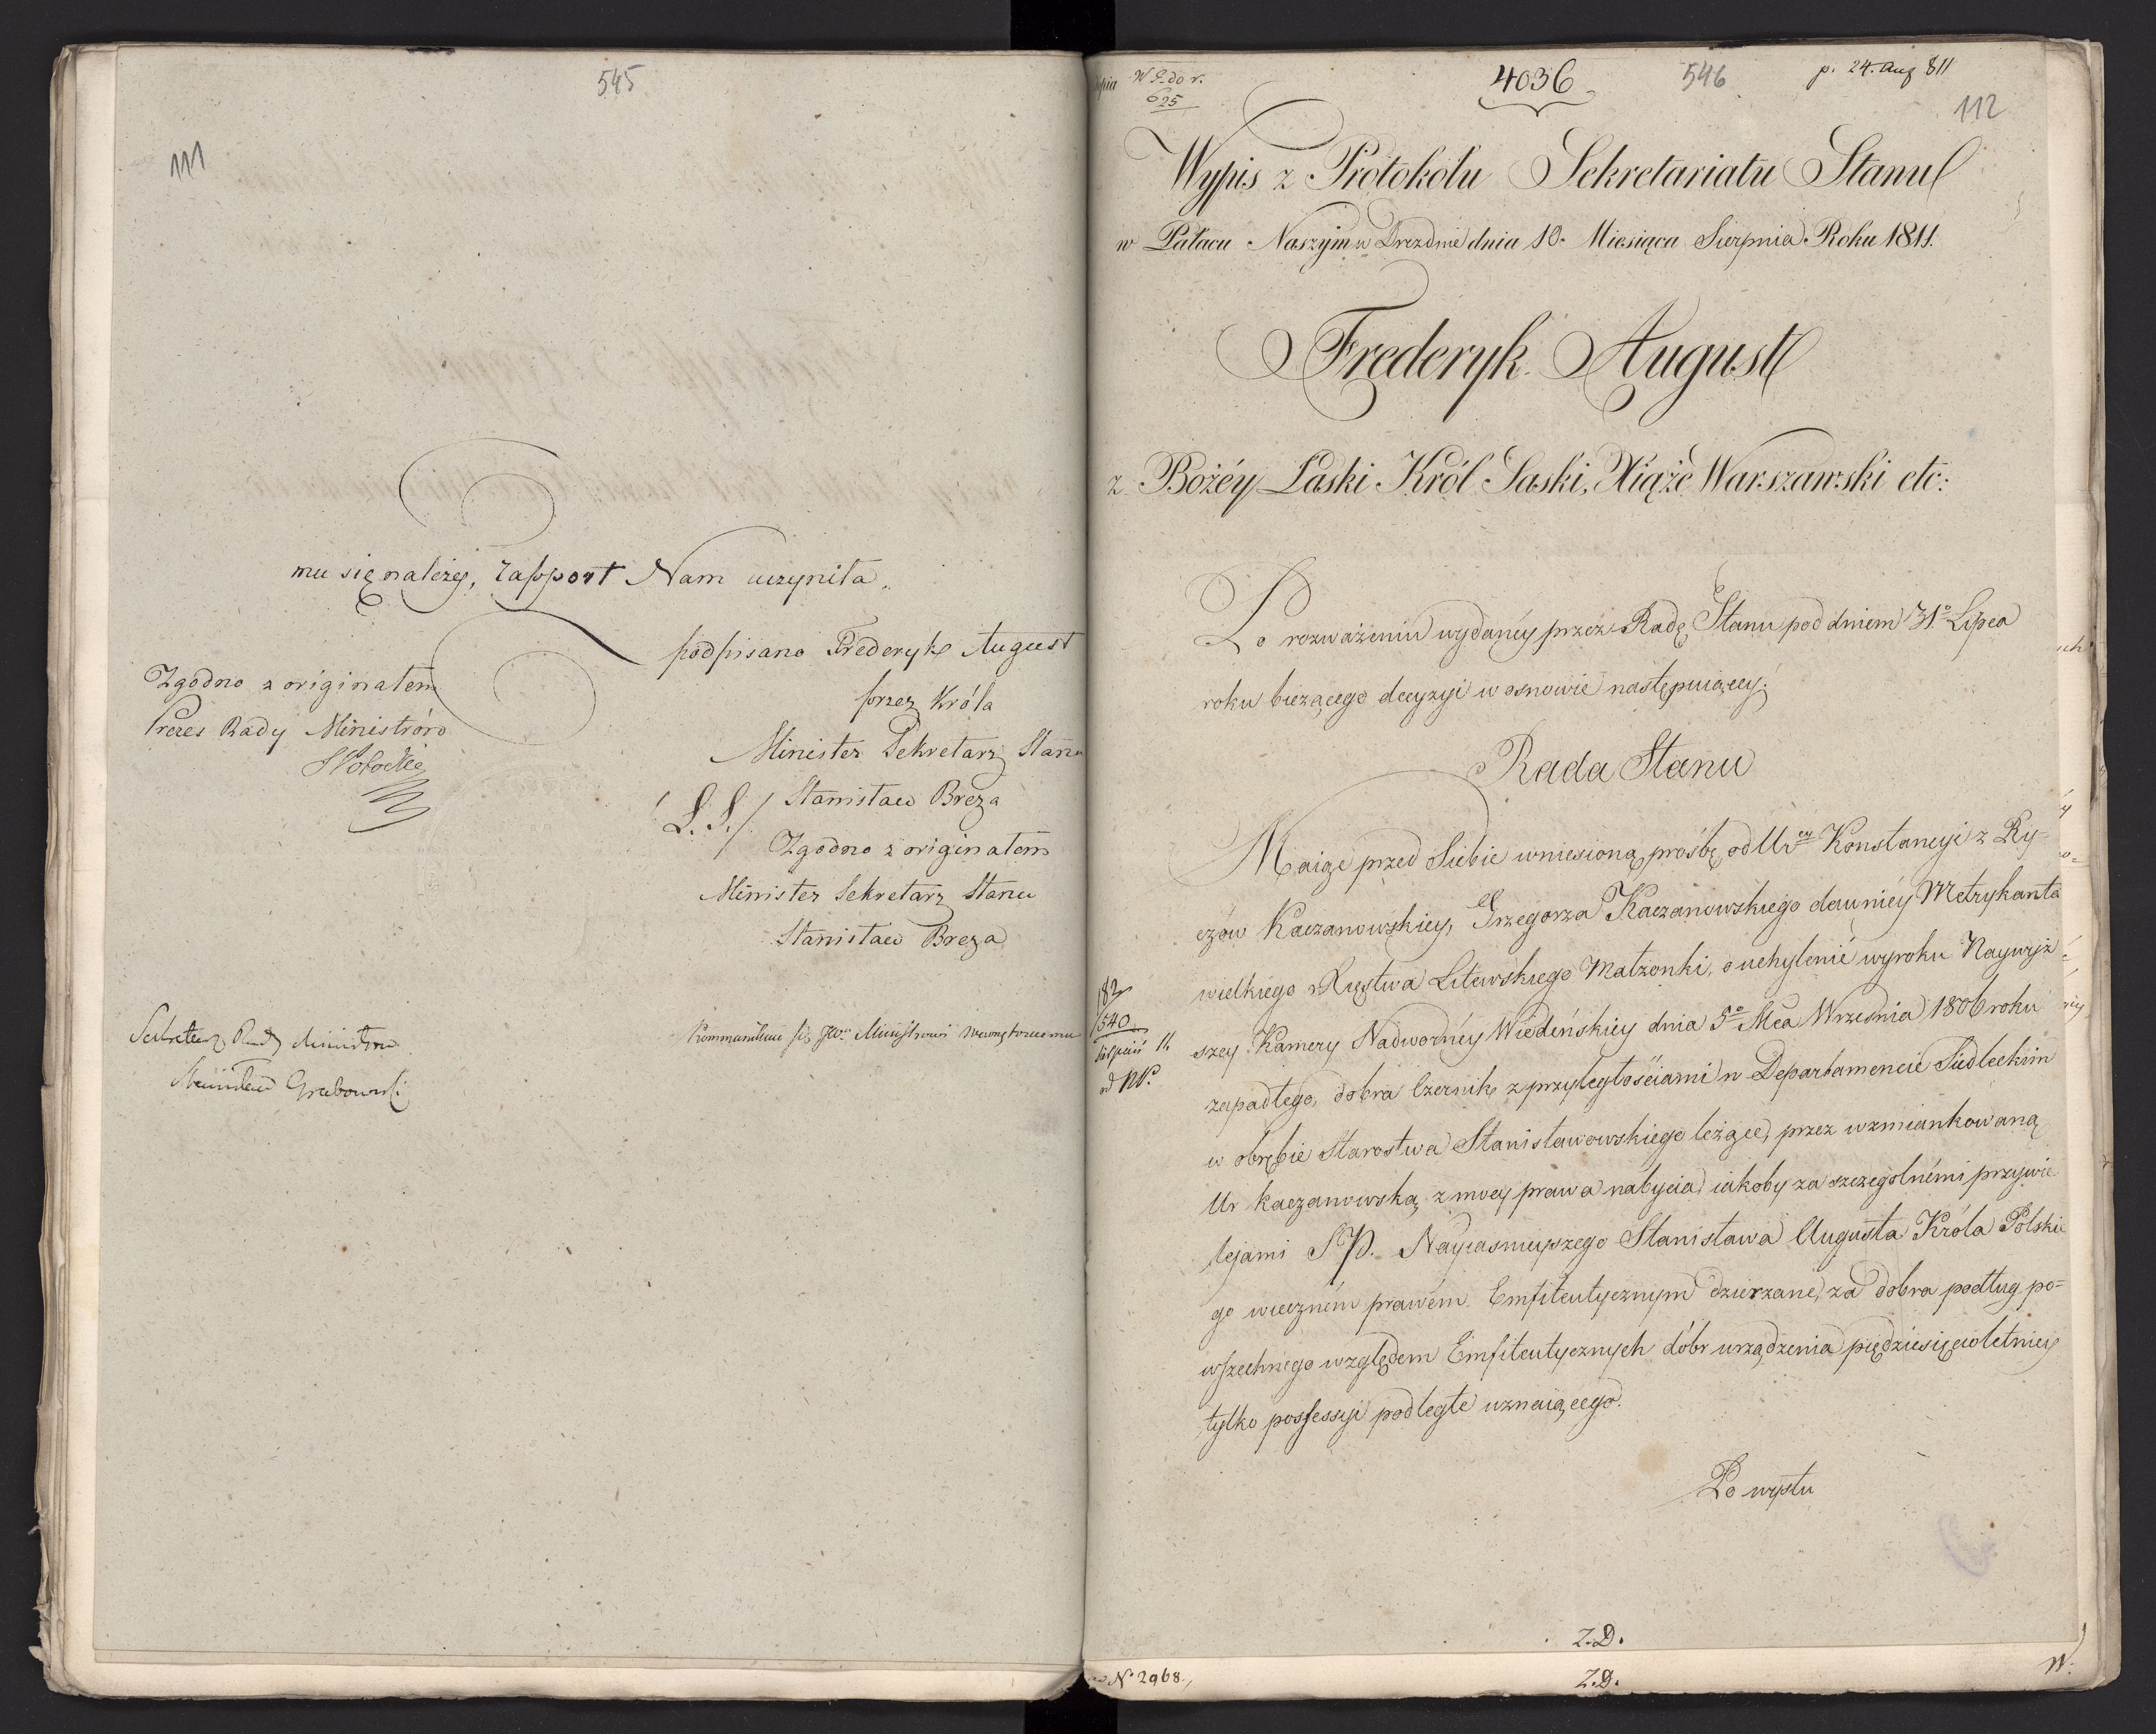 545
111
mu się należy, rapport Nam uczyniła.
podpisano Frederyk August
przez Króla
Minister Sekretarz Stanu
(L. S.) Stanisław Breza
Zgodno z originałem
Minister Sekretarz Stanu
Stanisław Breza
Zgodno z originałem
Prezes Rady Ministrów
Potocki
Kommunikuie się JW. Ministrowi Wewnętrznemu
Sekretarz Rady Ministrów
Stanisław Grabowski
4036
546
p. 24. Aug 811
112
625
Wypis z Protokółu Sekretariatu Stanu
w Pałacu Naszym w Dreznie dnia 10. Miesiąca Sierpnia Roku 1811.
Frederyk August
z Bożéy Łaski Król Saski, Xiąże Warszawski etc:
Po rozważeniu wydanéy przez Radę Stanu pod dniem 31º Lipca
roku bieżącego decyzyi w osnowie następuiącey;
Rada Stanu
Maiąc przed Siebie wniesioną prośbę od Urey Konstancyi z Ry-
czów Kaczanowskiey, Grzegorza Kaczanowskiego dawniéy Metrykanta
wielkiego Xięstwa Litewskiego Małżonki, o uchylenié wyroku Naywyż-
szey Kamery Nadwornéy Wiedeńskiey dnia 5º Mca Września 1806 roku
zapadłego, dobra Czernik z przyległościami w Departamencie Siedleckim
w obrębie Starostwa Stanisławowskiego leżące, przez wzmiankowaną
Ur Kaczanowską z mocy prawa nabycia iakoby za szczególnémi przywie
lejami S. P. Nayiasnieyszego Stanisława Augusta Króla Polskie
go wieczném prawém Emfiteutycznym dzierżane, za dobra podług po-
wszechnego względem Emfiteutycznych dóbr urządzenia pięćdziesięcioletniey
tylko possessyi podległe uznaiącego.
Po wysłu
182
1540
od NP.
Z.D.
Nº 2968.
Z.D.
W: